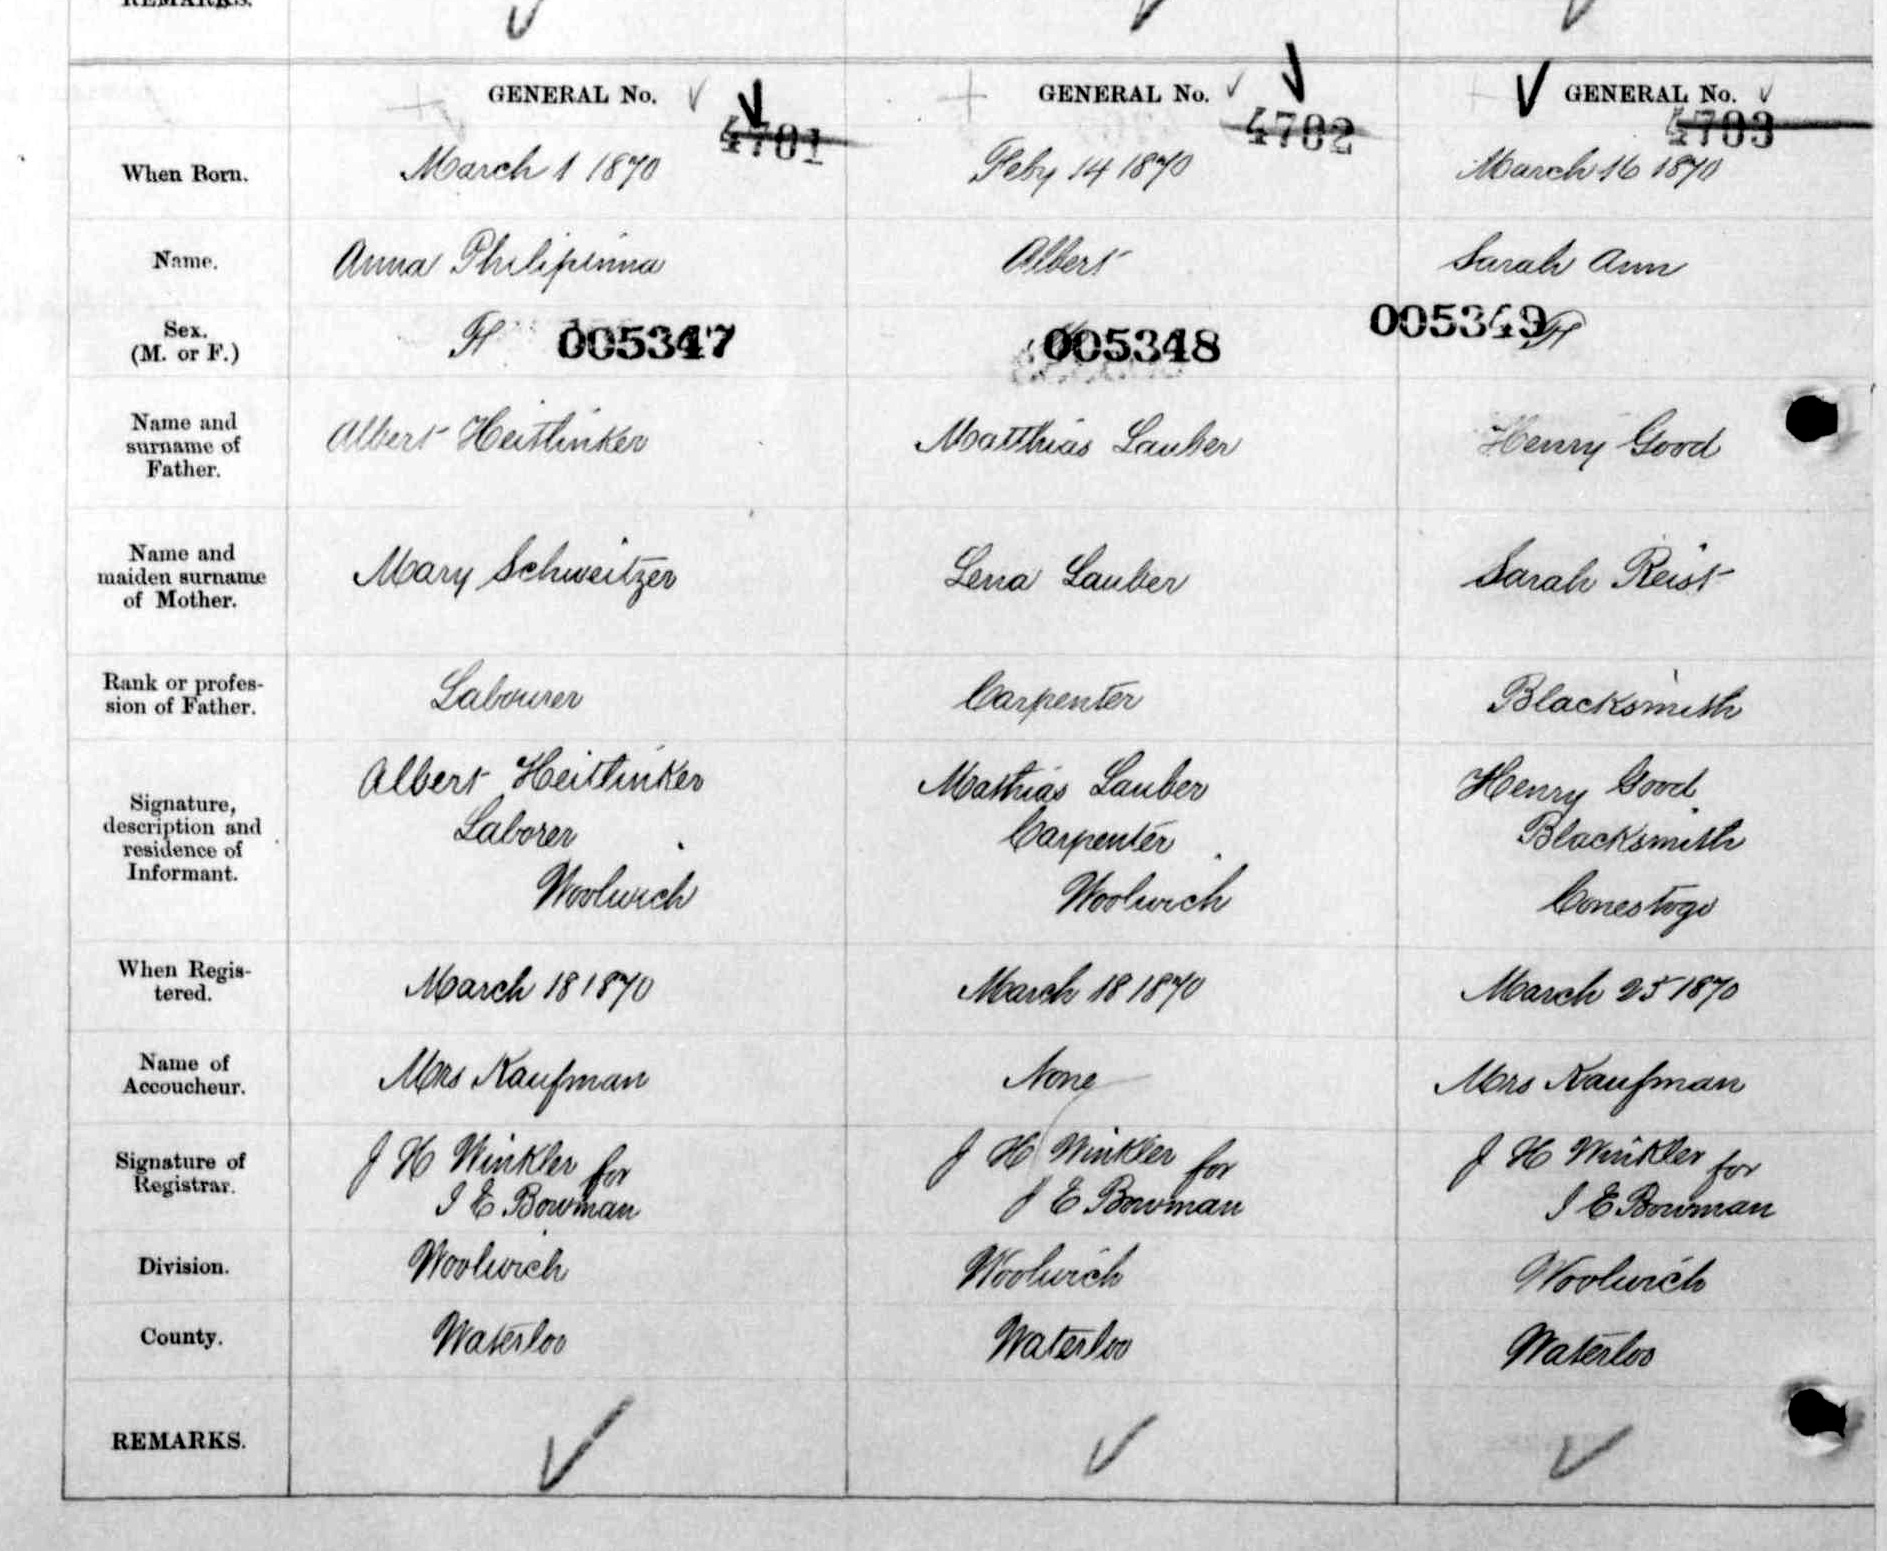 REMARKS.
GENERAL No. GENERAL No. GENERAL No.
4701 4702 4703
When Born. March 1 1870 Feby 14 1870 March 16 1870
Name. Anna Philipinna Albert Sarah Ann
Sex.
(M. or F.) F 005347 005348 005349 F
Name and
surname of
Father. Albert Heitlinker Matthias Lauber Henry Good
Name and
maiden surname
of Mother. Mary Schweitzer Lena Lauber Sarah Reist
Rank or profes-
sion of Father. Labourer Carpenter Blacksmith
Signature,
description and
residence of
Informant.
Albert Heitlinker Mathias Lauber Henry Good
Laborer Carpenter Blacksmith
Woolwich Woolwich Conestogo
When Regis-
tered. March 18 1870 March 18 1870 March 25 1870
Name of
Accoucheur. Mrs Kaufman None Mrs Kaufman
Signature of
Registrar.
J H Winkler for J H Winkler for J H Winkler for
I E Bowman I E Bowman I E Bowman
Division. Woolwich Woolwich Woolwich
County. Waterloo Waterloo Waterloo
REMARKS.